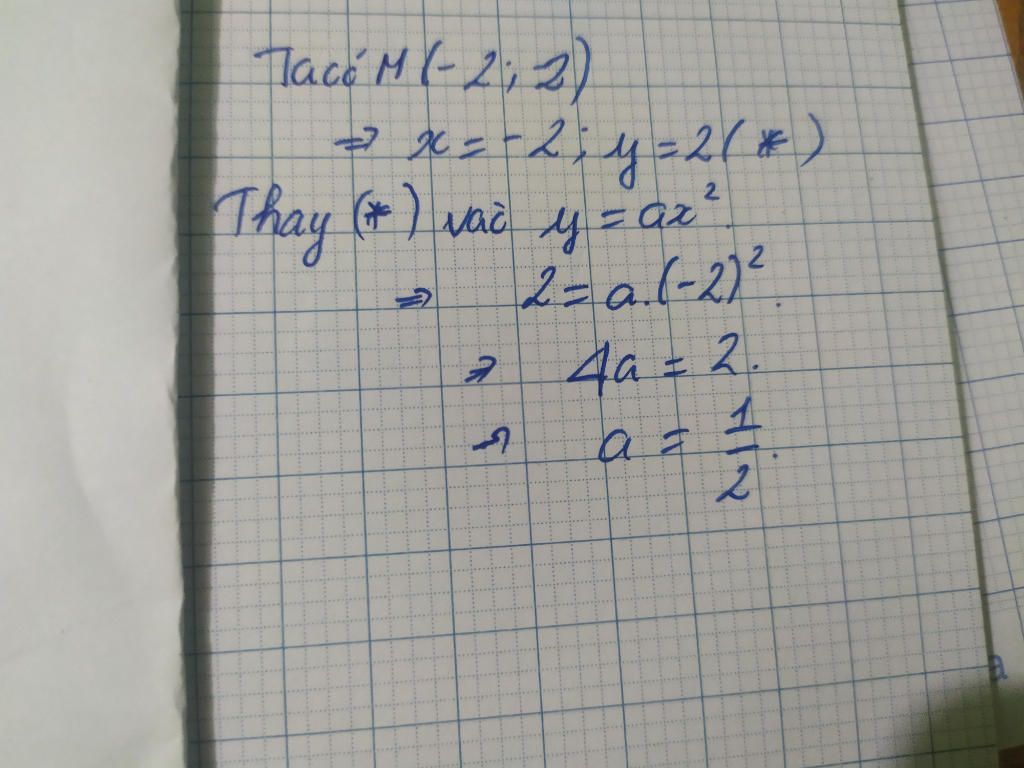 Ta có M (-2; 2)
⇒ x = -2; y = 2 (*)
Thay (*) vào y = ax².
⇒ 2 = a.(-2)².
⇒ 4a = 2.
⇒ a = 1/2.
a